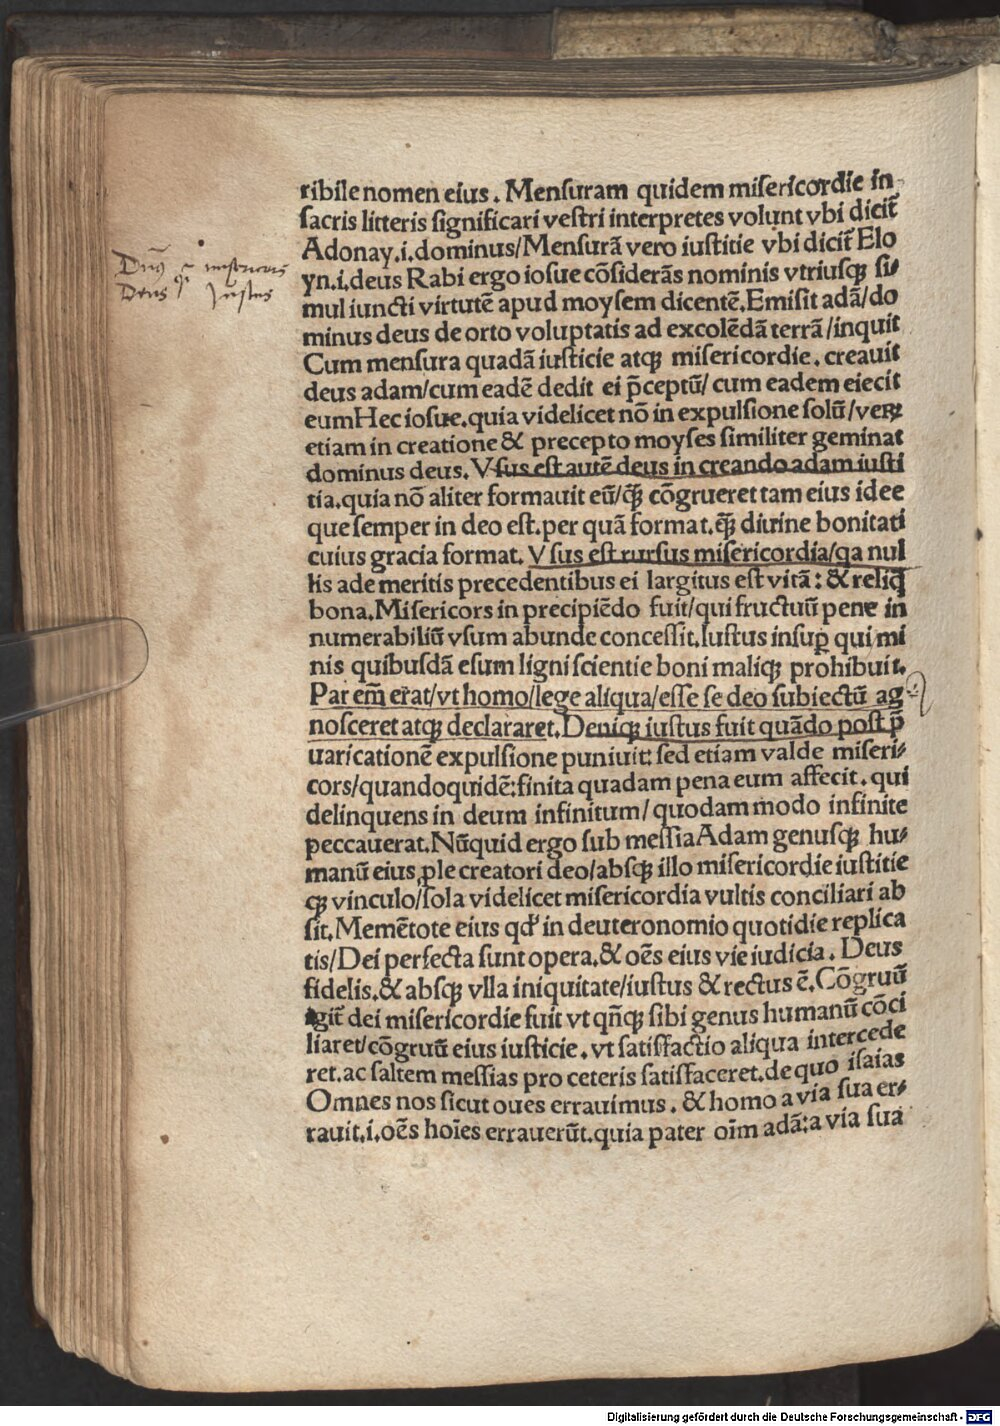 ribile nomen eius. Mensuram quidem misericordie in
sacris litteris significari vestri interpretes volunt vbi dicit̃
Adonay.i.dominus/Mensurã vero iustitie vbi dicit̃ Elo
yn.i.deus Rabi ergo iosue cõsiderãs nominis vtriusqꝫ si⸗
mul iuncti virtutẽ apud moysem dicentẽ.Emisit adã/do
minus deus de orto voluptatis ad excolẽdã terrã/inquit
Cum mensura quadã iusticie atqꝫ misericordie. creauit
deus adam/cum eadẽ dedit ei p̃ceptũ/ cum eadem eiecit
eum Hec iosue.quia videlicet nõ in expulsione solũ/veꝝ
etiam in creatione & precepto moyses similiter geminat
dominus deus. Vsus est autẽ deus in creando adam iusti
tia.quia nõ aliter formauit eũ/q̃ꝫ cõgrueret tam eius idee
que semper in deo est.per quã format.q̃ꝫ diuine bonitati
cuius gracia format. Vsus est rursus misericordia/qa nul
lis ade meritis precedentibus ei largitus est vitã: & reliq̃
bona.Misericors in precipiẽdo fuit/qui fructuũ pene in
numerabiliũ vsum abunde concessit.Iustus insuꝑ qui mi
nis quibusdã esum ligni scientie boni maliqꝫ prohibuit.
Par em̃ erat/vt homo/lege aliqua/esse se deo subiectũ ag
nosceret atqꝫ declararet.Deniqꝫ iustus fuit quãdo post p̃
uaricationẽ expulsione puniuit: sed etiam valde miseri⸗
cors/quandoquidẽ:finita quadam pena eum affecit. qui
delinquens in deum infinitum/ quodammodo infinite
peccauerat.Nũquid ergo sub messia Adam genusqꝫ hu⸗
manũ eius ꝓle creatori deo/absqꝫ illo misericordie iustitie
qꝫ vinculo/sola videlicet misericordia vultis conciliari ab
sit.Memẽtote eius qđ in deuteronomio quotidie replica
tis/Dei perfecta sunt opera.& oẽs eius vie iudicia. Deus
fidelis.& absqꝫ vlla iniquitate/iustus & rectus ẽ.Cõgruũ
igit̃ dei misericordie fuit vt qñqꝫ sibi genus humanũ cõci
liaret/cõgruũ eius iusticie. vt satisfactio aliqua intercede
ret.ac saltem messias pro ceteris satisfaceret.de quo isaias
Omnes nos sicut oues errauimus. & homo a via sua er⸗
rauit.i.oẽs hoĩes errauerũt.quia pater oĩm adã:a via sua
Deus Justus
Digitalisierung gefördert durch die Deutsche Forschungsgemeinschaft - DFG